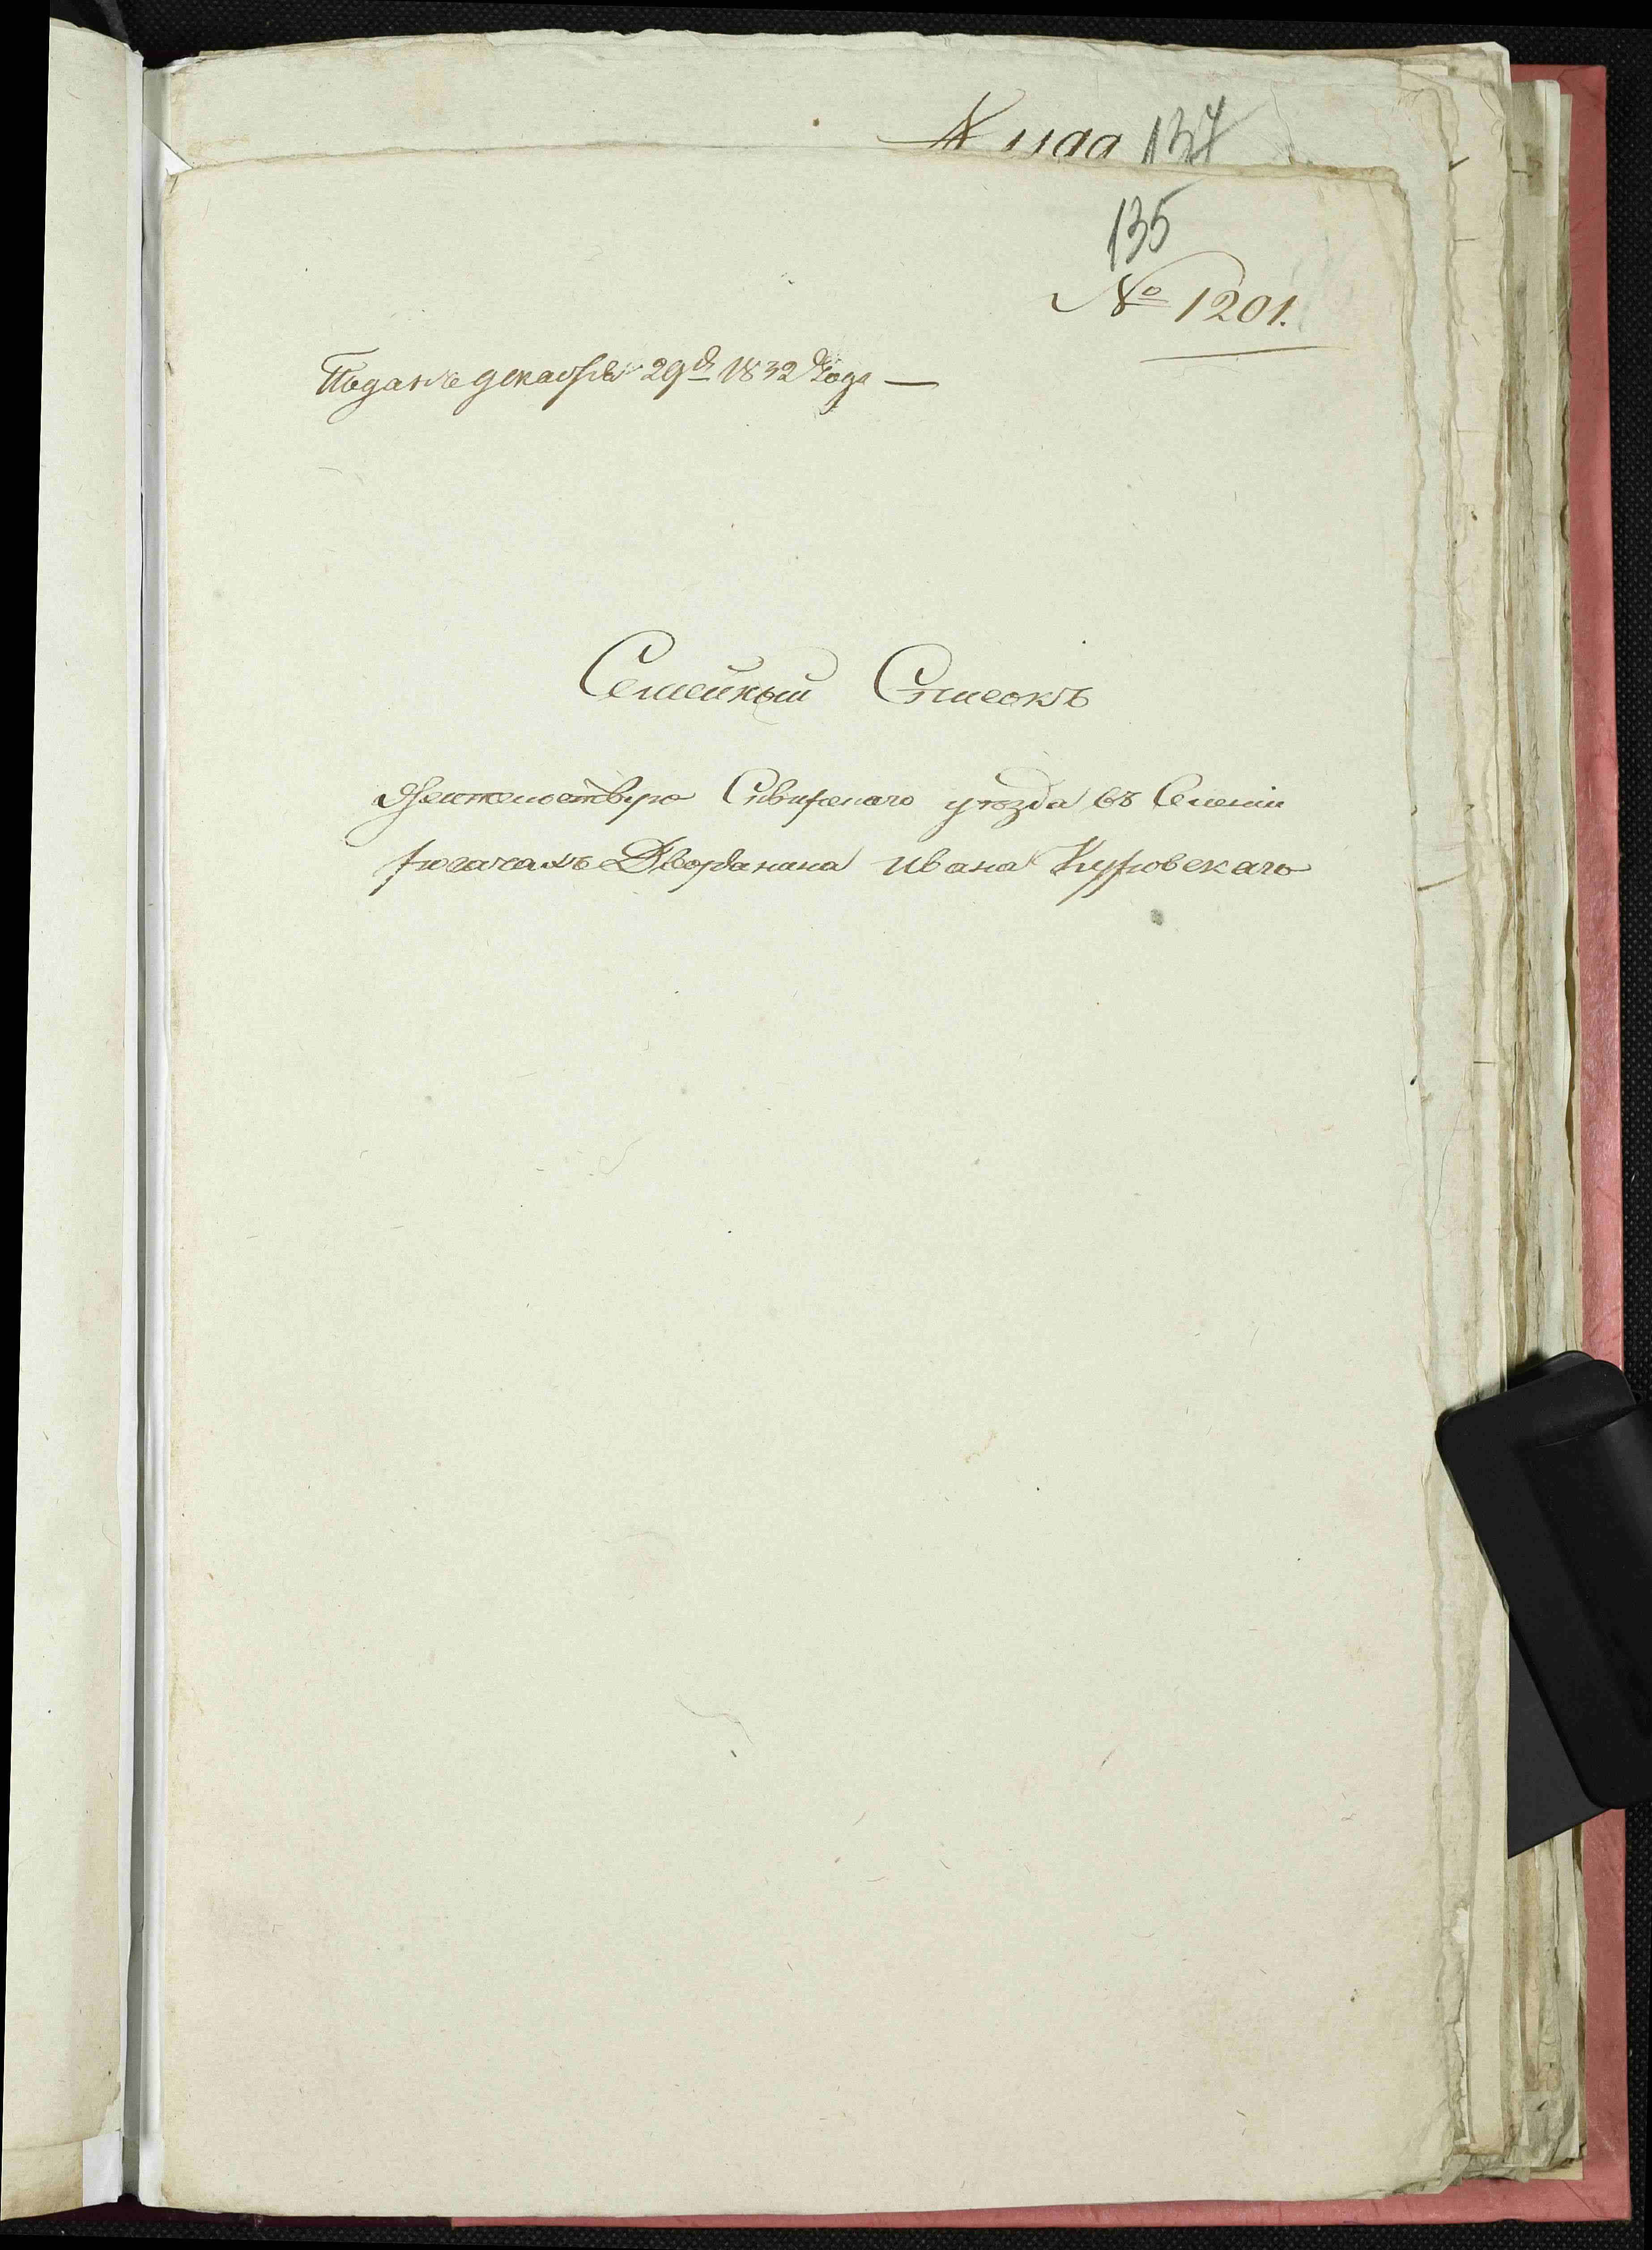 137
135
№ 1201.
Поданъ декабря 29й 1832 Года —
Семейный Списокъ
Жительствую Сквирскаго уѣзда въ Селеніи
Рогачахъ Дворянина Ивана Куровскаго